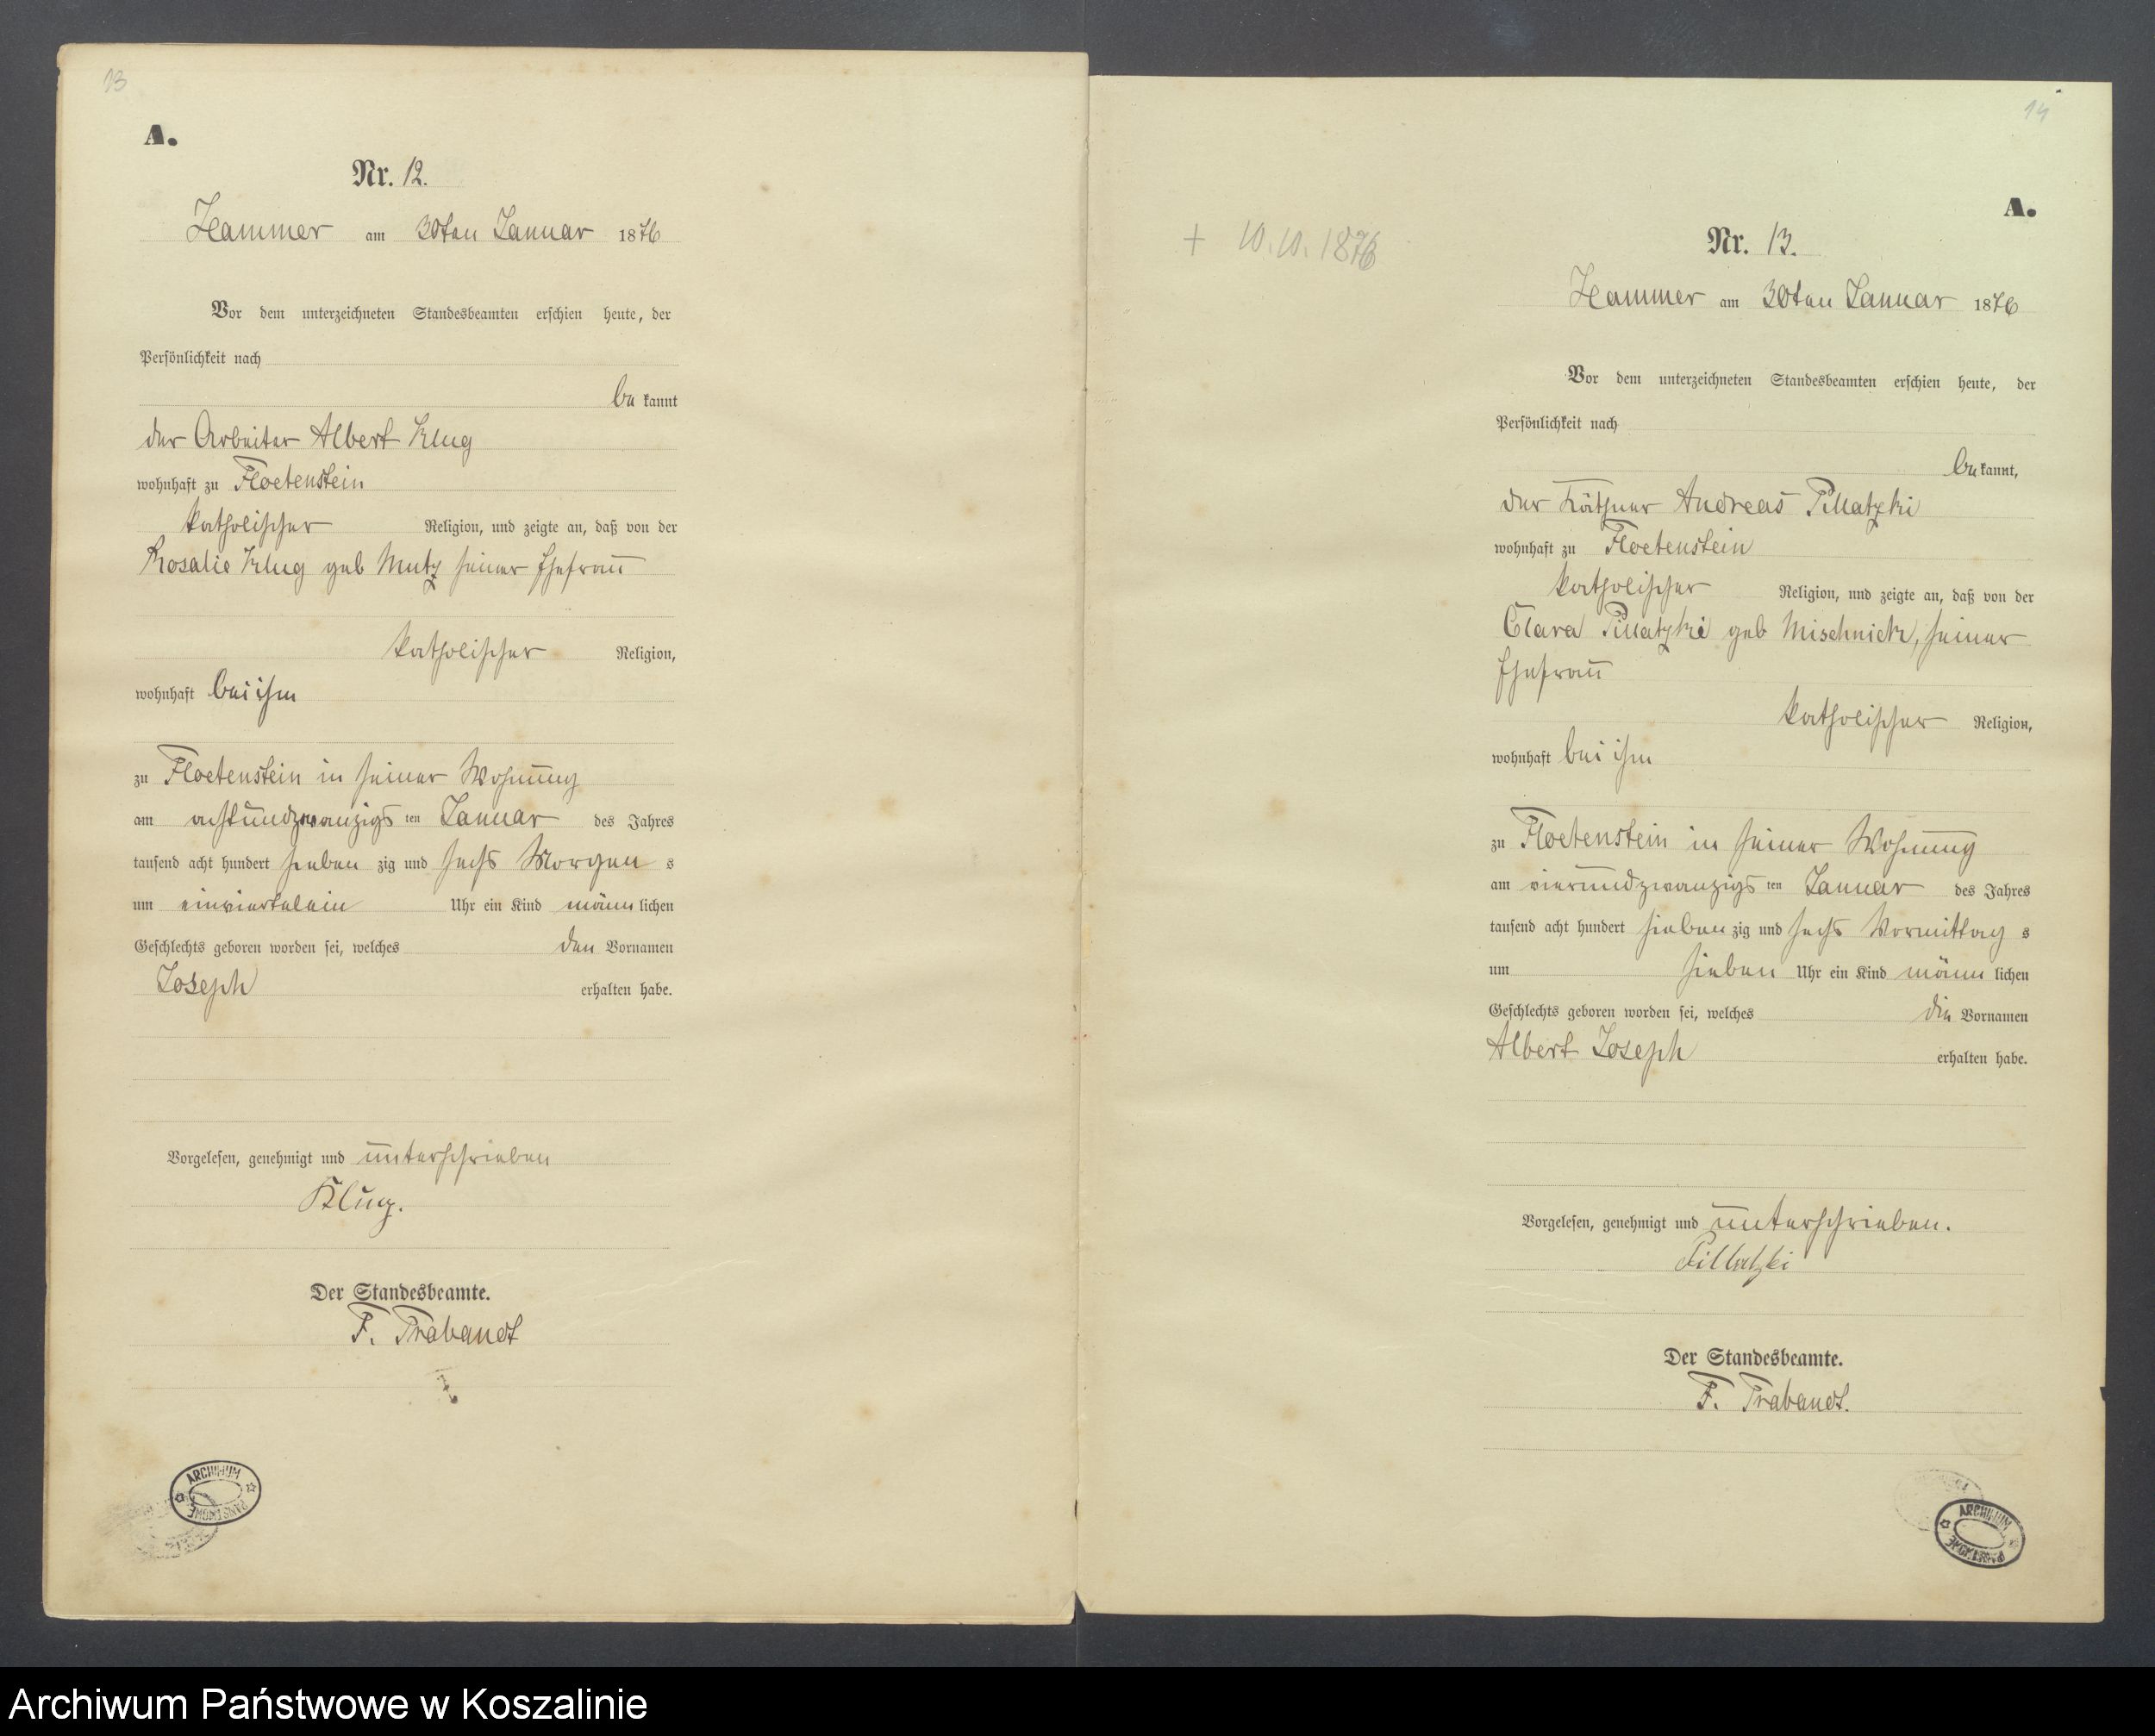 13
A.
Nr. 12.
Hammer am 30ten Januar 1876
Vor dem unterzeichneten Standesbeamten erschien heute, der
Persönlichkeit nach
be kannt
der Arbeiter Albert Klug
wohnhaft zu Floetenstein
katholischer Religion, und zeigte an, daß von der
Rosalie Klug geb Mutz seiner Ehefrau
katholischer Religion,
wohnhaft bei ihm
zu Floetenstein in seiner Wohnung
am achtundzwanzigs ten Januar des Jahres
tausend acht hundert sieben zig und sechs Morgen s
um einviertelein Uhr ein Kind männ lichen
Geschlechts geboren worden sei, welches den Vornamen
Joseph erhalten habe.
Vorgelesen, genehmigt und unterschrieben
Klug.
Der Standesbeamte.
F. Trabandt
ARCHIWUM PAŃSTWOWE
14
A.
+ 10.10.1876
Nr. 13.
Hammer am 30ten Januar 1876
Vor dem unterzeichneten Standesbeamten erschien heute, der
Persönlichkeit nach
be kannt,
der Käthner Andreas Pillatzki
wohnhaft zu Floetenstein
katholischer Religion, und zeigte an, daß von der
Clara Pillatzki geb Mischnick, seiner
Ehefrau
katholischer Religion,
wohnhaft bei ihm
zu Floetenstein in seiner Wohnung
am vierundzwanzigs ten Januar des Jahres
tausend acht hundert sieben zig und sechs Vormittag s
um sieben Uhr ein Kind männ lichen
Geschlechts geboren worden sei, welches die Vornamen
Albert Joseph erhalten habe.
Vorgelesen, genehmigt und unterschrieben.
Pillatzki
Der Standesbeamte.
F. Trabandt.
ARCHIWUM PAŃSTWOWE
Archiwum Państwowe w Koszalinie